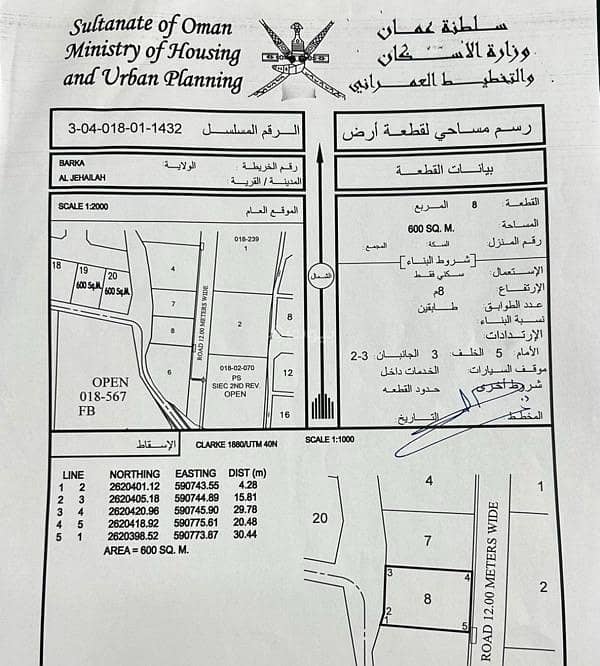 Sultanate of Oman
Ministry of Housing
and Urban Planning
سلطنة عمان
وزارة الأسكان
والتخطيط العمراني
3-04-018-01-1432 الرقم المسلسل
رسم مساحي لقطعة أرض
BARKA
AL JEHAILAH
الولاية:
رقم الخريطة:
المدينة / القرية:
بيانات القطعة
SCALE 1:2000
الموقع العام
القطعة: 8 المربع
المساحة: 600 SQ. M.
رقم المنزل: السكة: المجمع:
شروط البناء
الإستعمال: سكني فقط
الإرتفاع 8م
عدد الطوابق طابقين
نسبة البناء
الإرتدادات:
الأمام 5 الخلف 3 الجانبان 2-3
موقف السيارات الخدمات داخل
شروط أخرى حدود القطعه
المخطط التاريخ
الشمال
018-239
1
18
19
600 Sq.M.
20
600 Sq.M.
4
7
8
6
ROAD 12.00 METERS WIDE
2
8
12
16
018-02-070
PS
SIEC 2ND REV.
OPEN
OPEN
018-567
FB
الإسقاط
CLARKE 1880/UTM 40N
SCALE 1:1000
LINE NORTHING EASTING DIST (m)
1 2 2620401.12 590743.55 4.28
2 3 2620405.18 590744.89 15.81
3 4 2620420.96 590745.90 29.78
4 5 2620418.92 590775.61 20.48
5 1 2620398.52 590773.87 30.44
AREA = 600 SQ. M.
4
20
7
3
4
8
2
1
5
ROAD 12.00 METERS WIDE
1
2